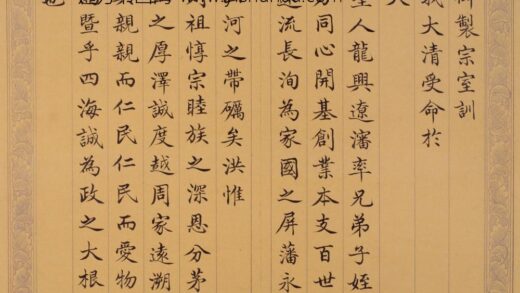 御製宗室訓
我大清受命於
天
聖人龍興遼瀋率兄弟子姪
同心開基創業本支百世
流長洵為家國之屏藩永
河之帶礪矣洪惟
祖惇宗睦族之深恩分茅
之厚澤誠度越周家遠溯
親親而仁民仁民而愛物
暨乎四海誠為政之大根
也